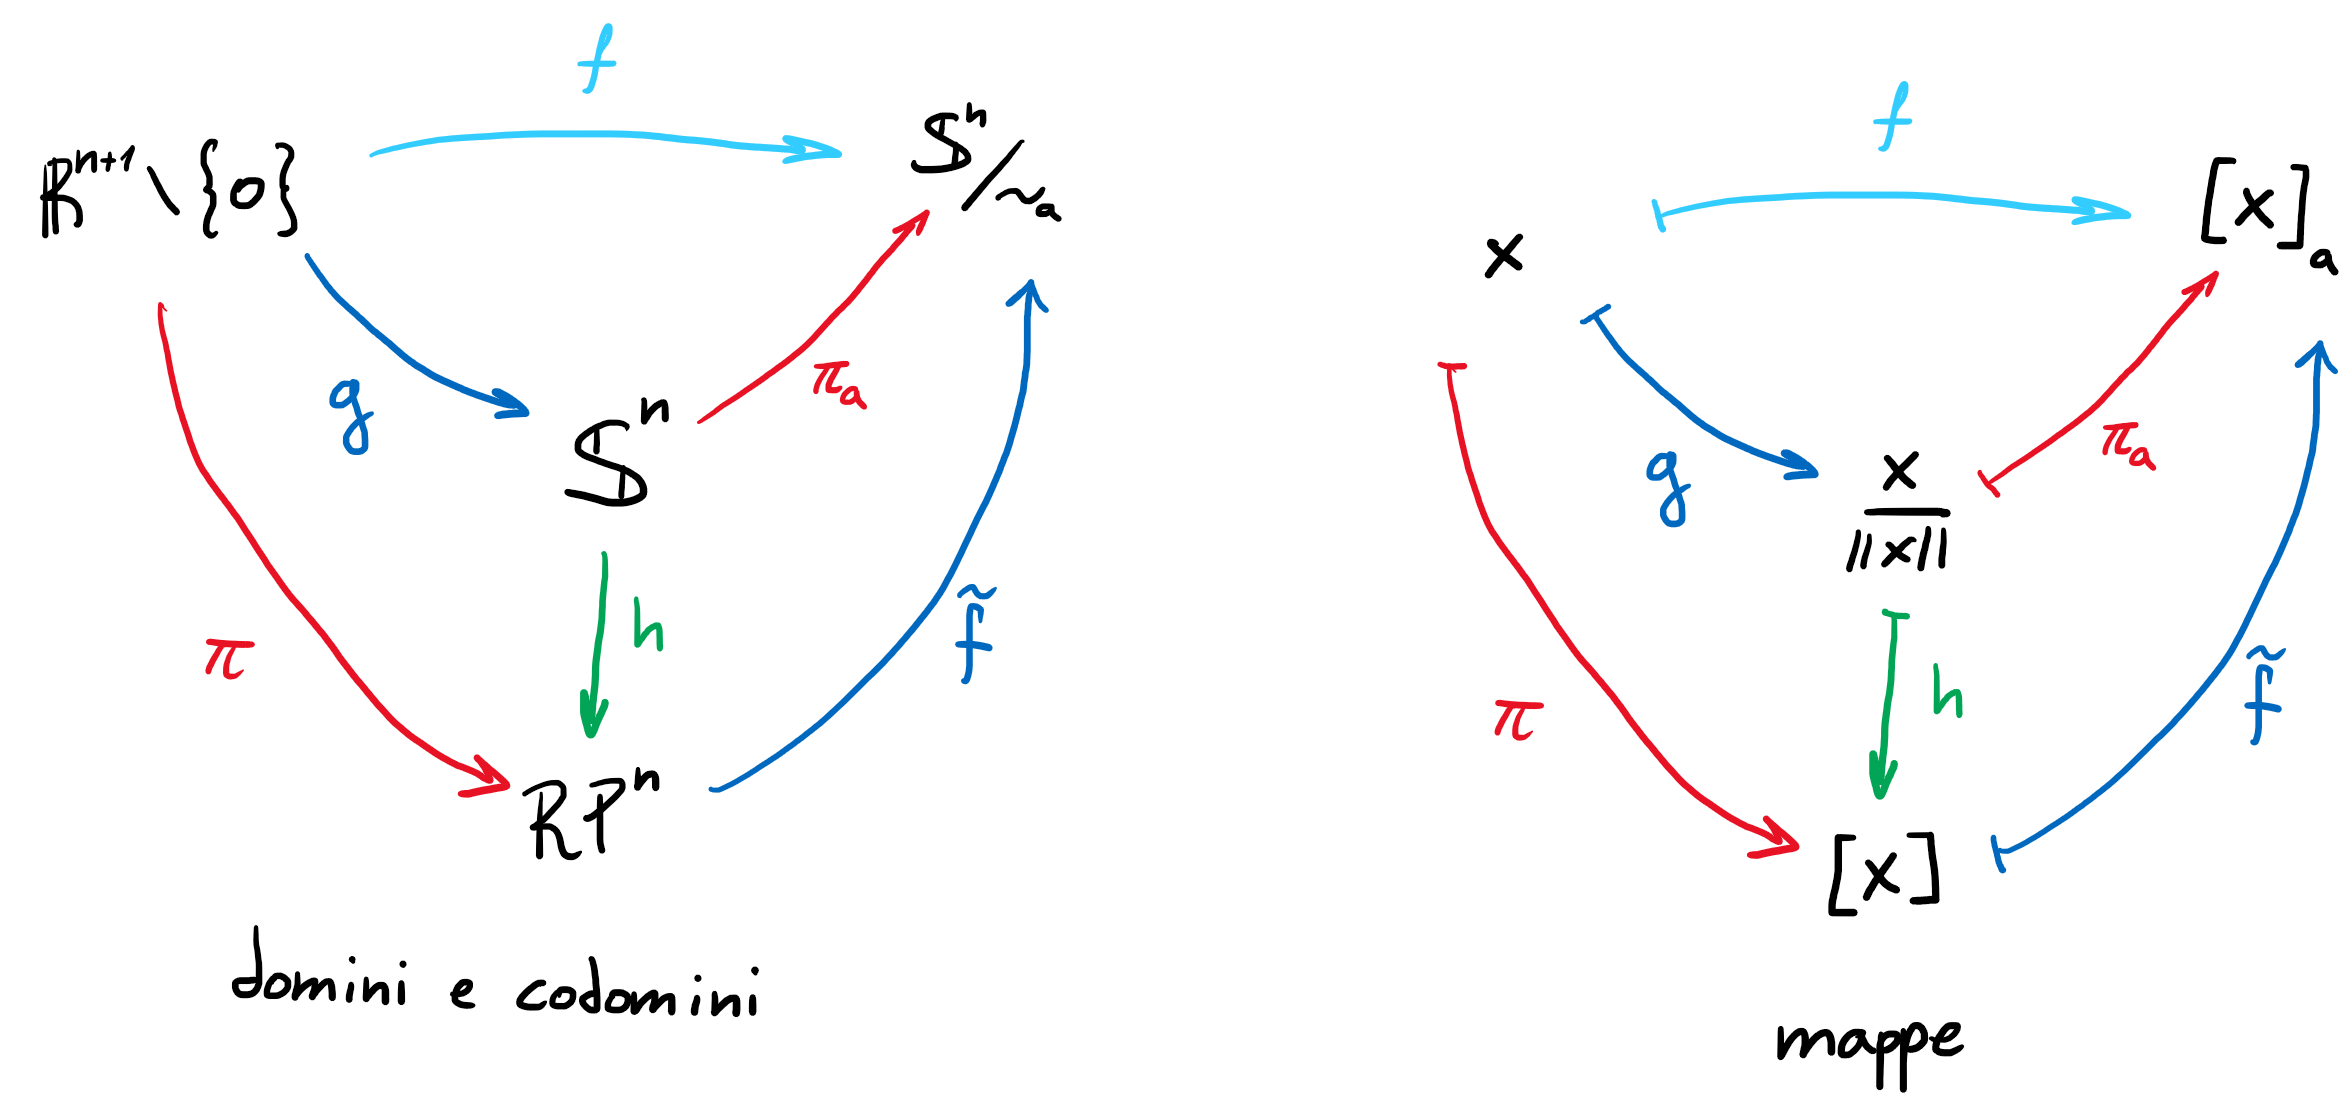 f
ℝⁿ⁺¹ \ {0}
𝕊ⁿ/~ₐ
g
πₐ
𝕊ⁿ
h
f̃
π
ℝPⁿ
domini e codomini
f
x
[x]ₐ
g
πₐ
x
‖x‖
h
f̃
π
[x]
mappe